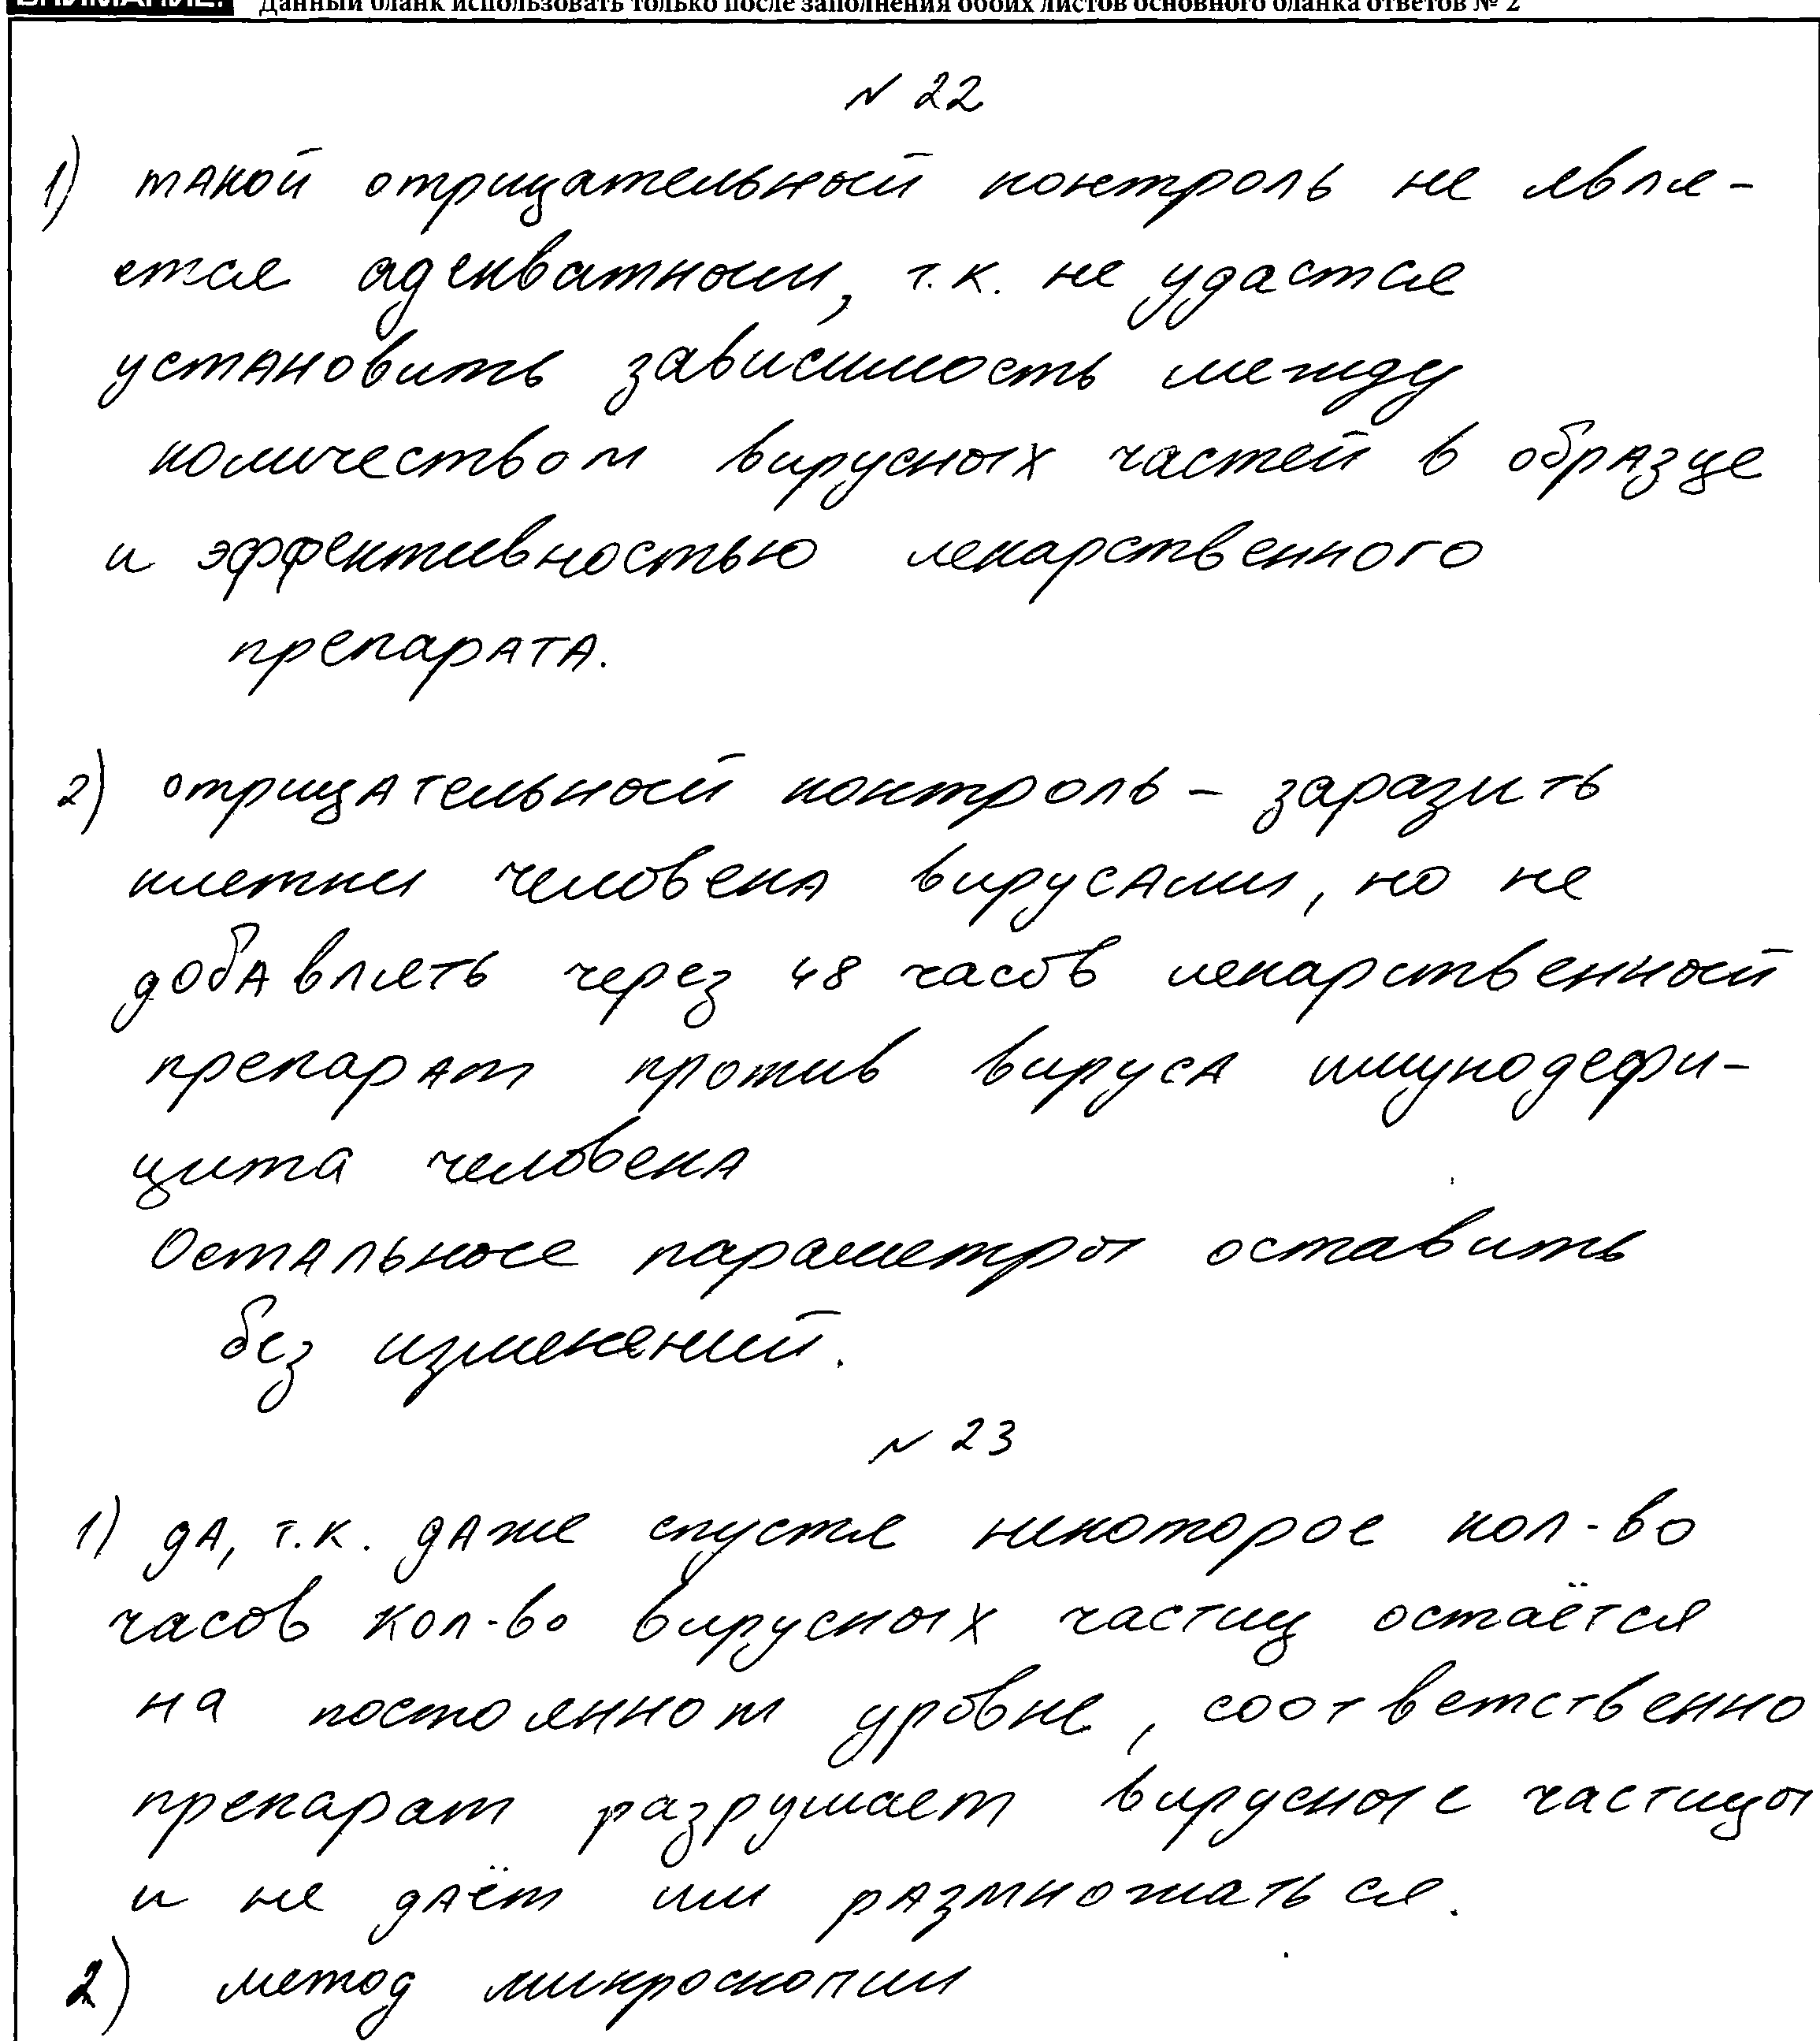 ВНИМАНИЕ! Данный бланк использовать только после заполнения обоих листов основного бланка ответов № 2
№ 22
1) такой отрицательный контроль не явля-
ется адекватным, т.к. не удастся
установить зависимость между
количеством вирусных частей в образце
и эффективностью лекарственного
препарата.
2) отрицательный контроль – заразить
клетки человека вирусами, но не
добавлять через 48 часов лекарственный
препарат против вируса имунодефи-
цита человека
Остальные параметры оставить
без изменений.
№ 23
1) да, т.к. даже спустя некоторое кол-во
часов кол-во вирусных частиц остаётся
на постоянном уровне, соответственно
препарат разрушает вирусные частицы
и не даёт им размножаться.
2) метод микроскопии